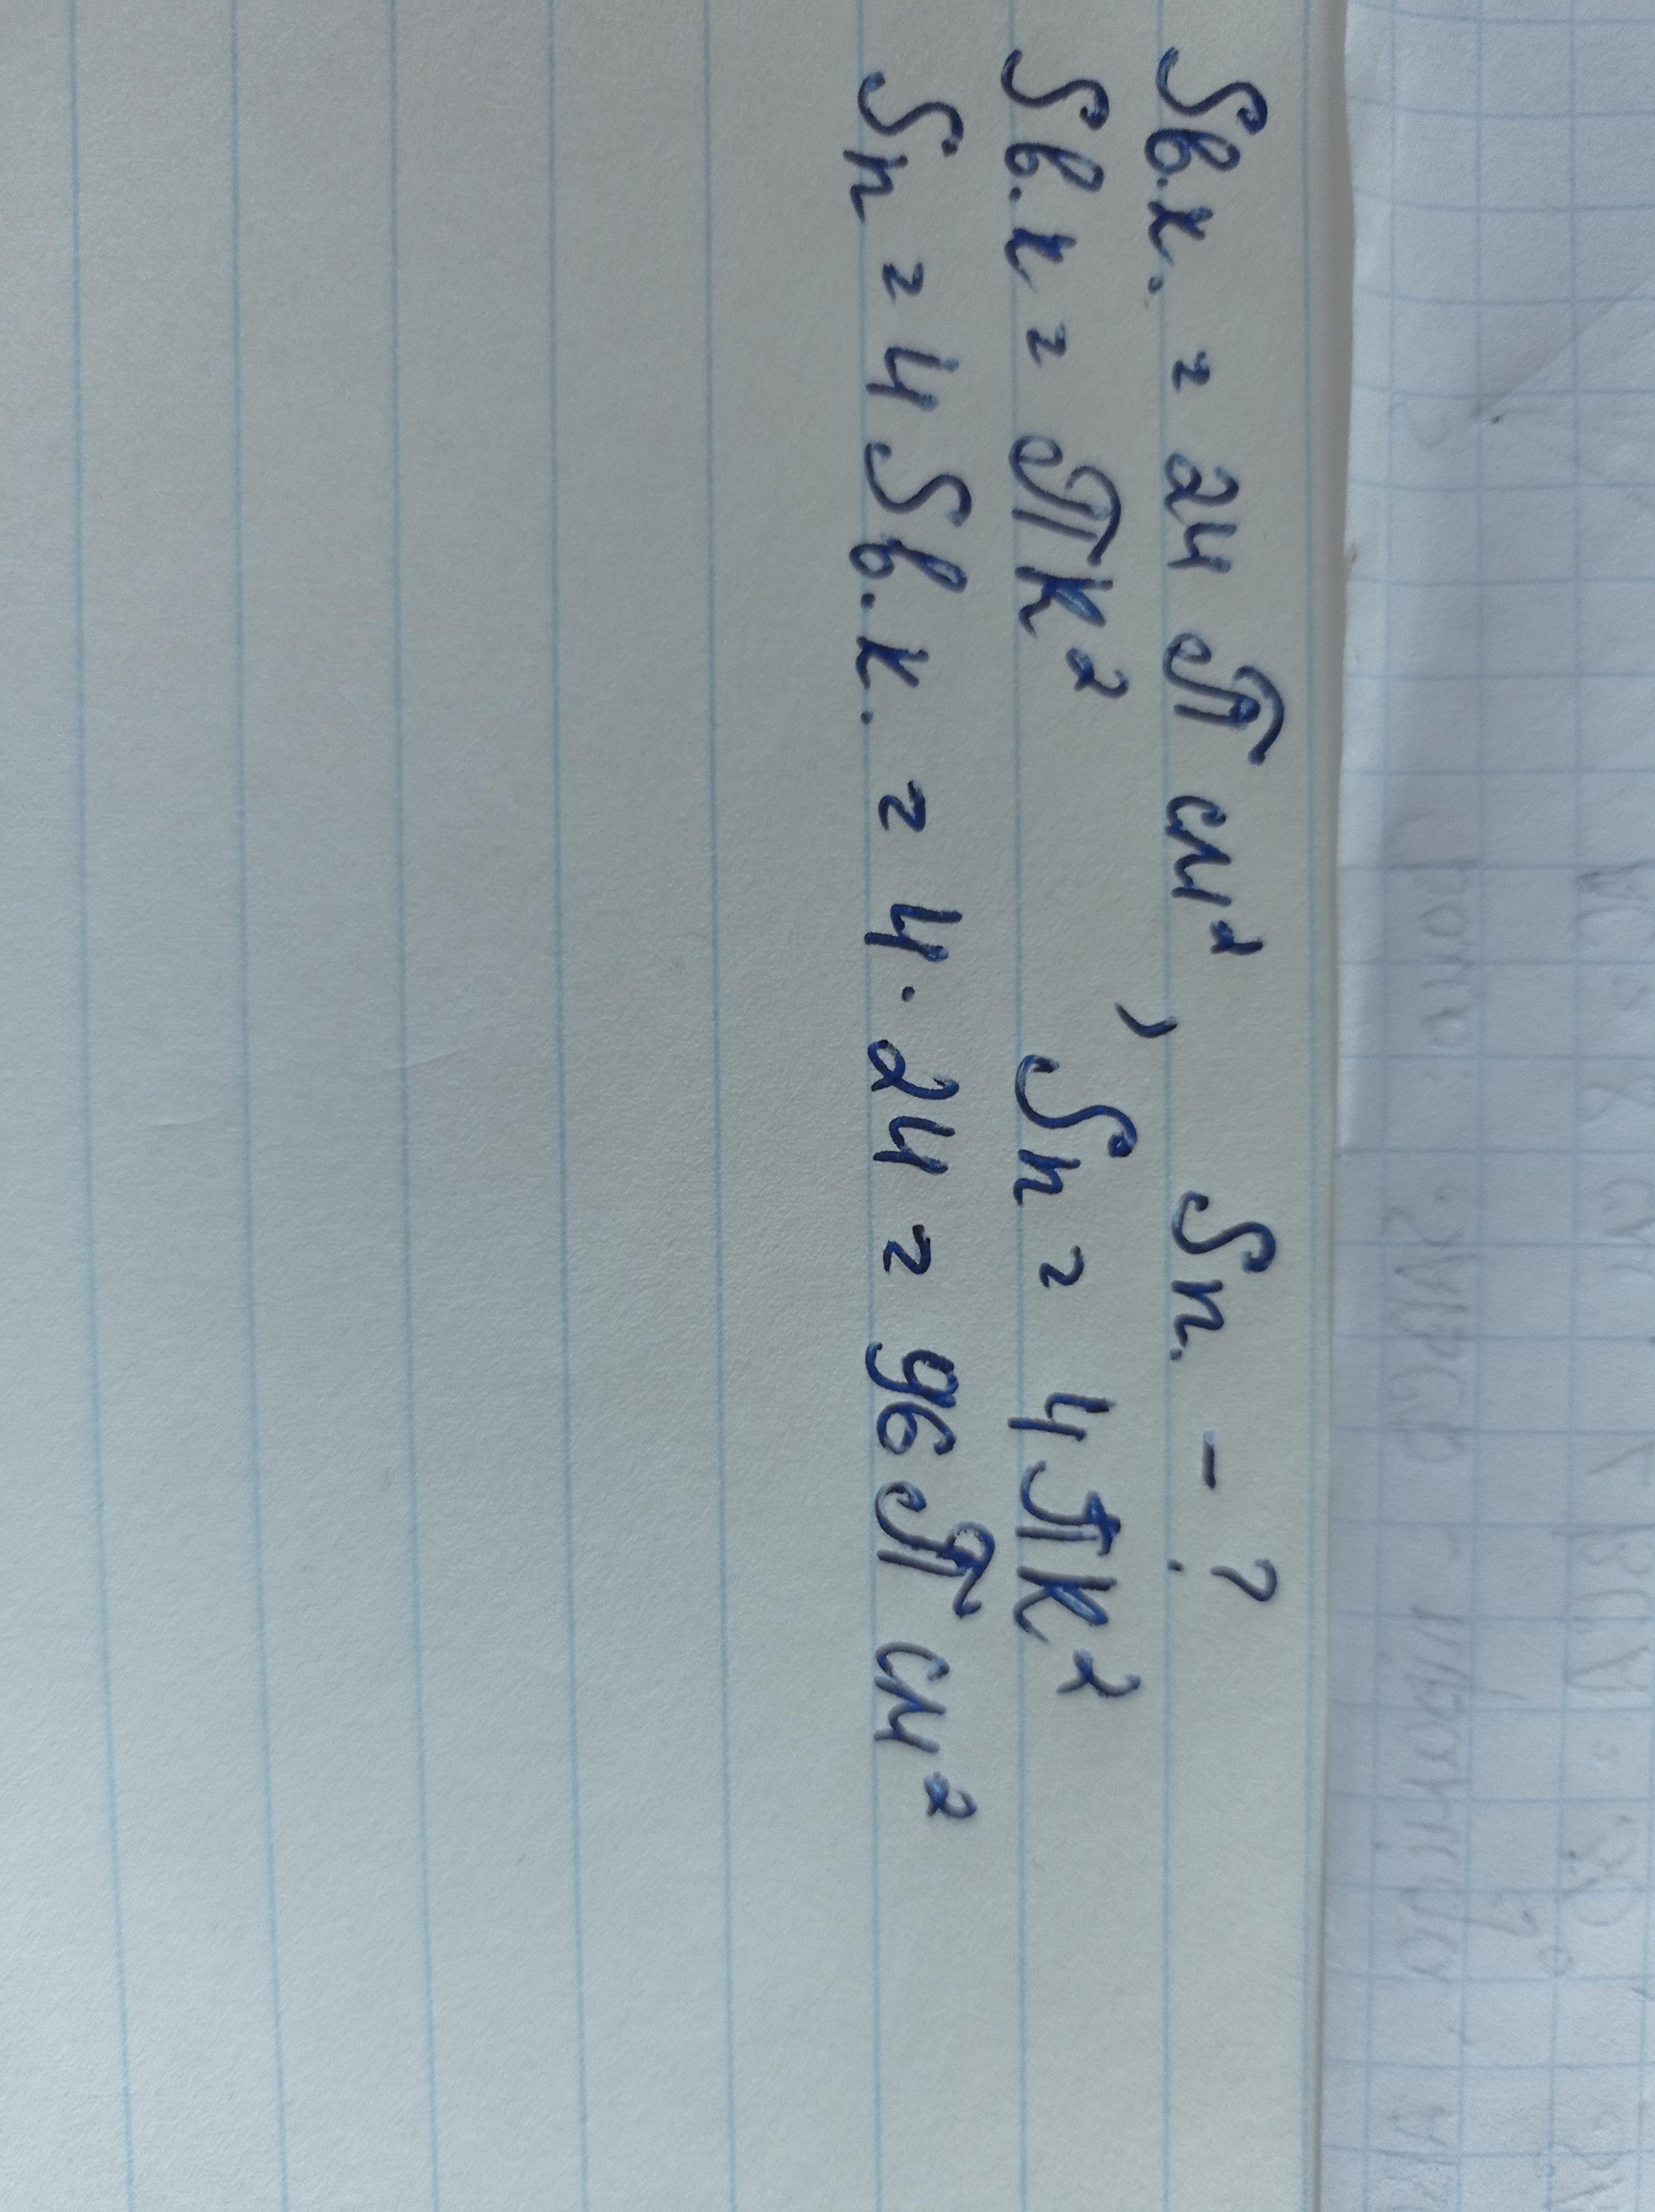 Sв.к. = 24 π см², Sп. - ?
Sв.к = πR² , Sп = 4πR²
Sп = 4 Sв.к. = 4 · 24 = 96 π см²